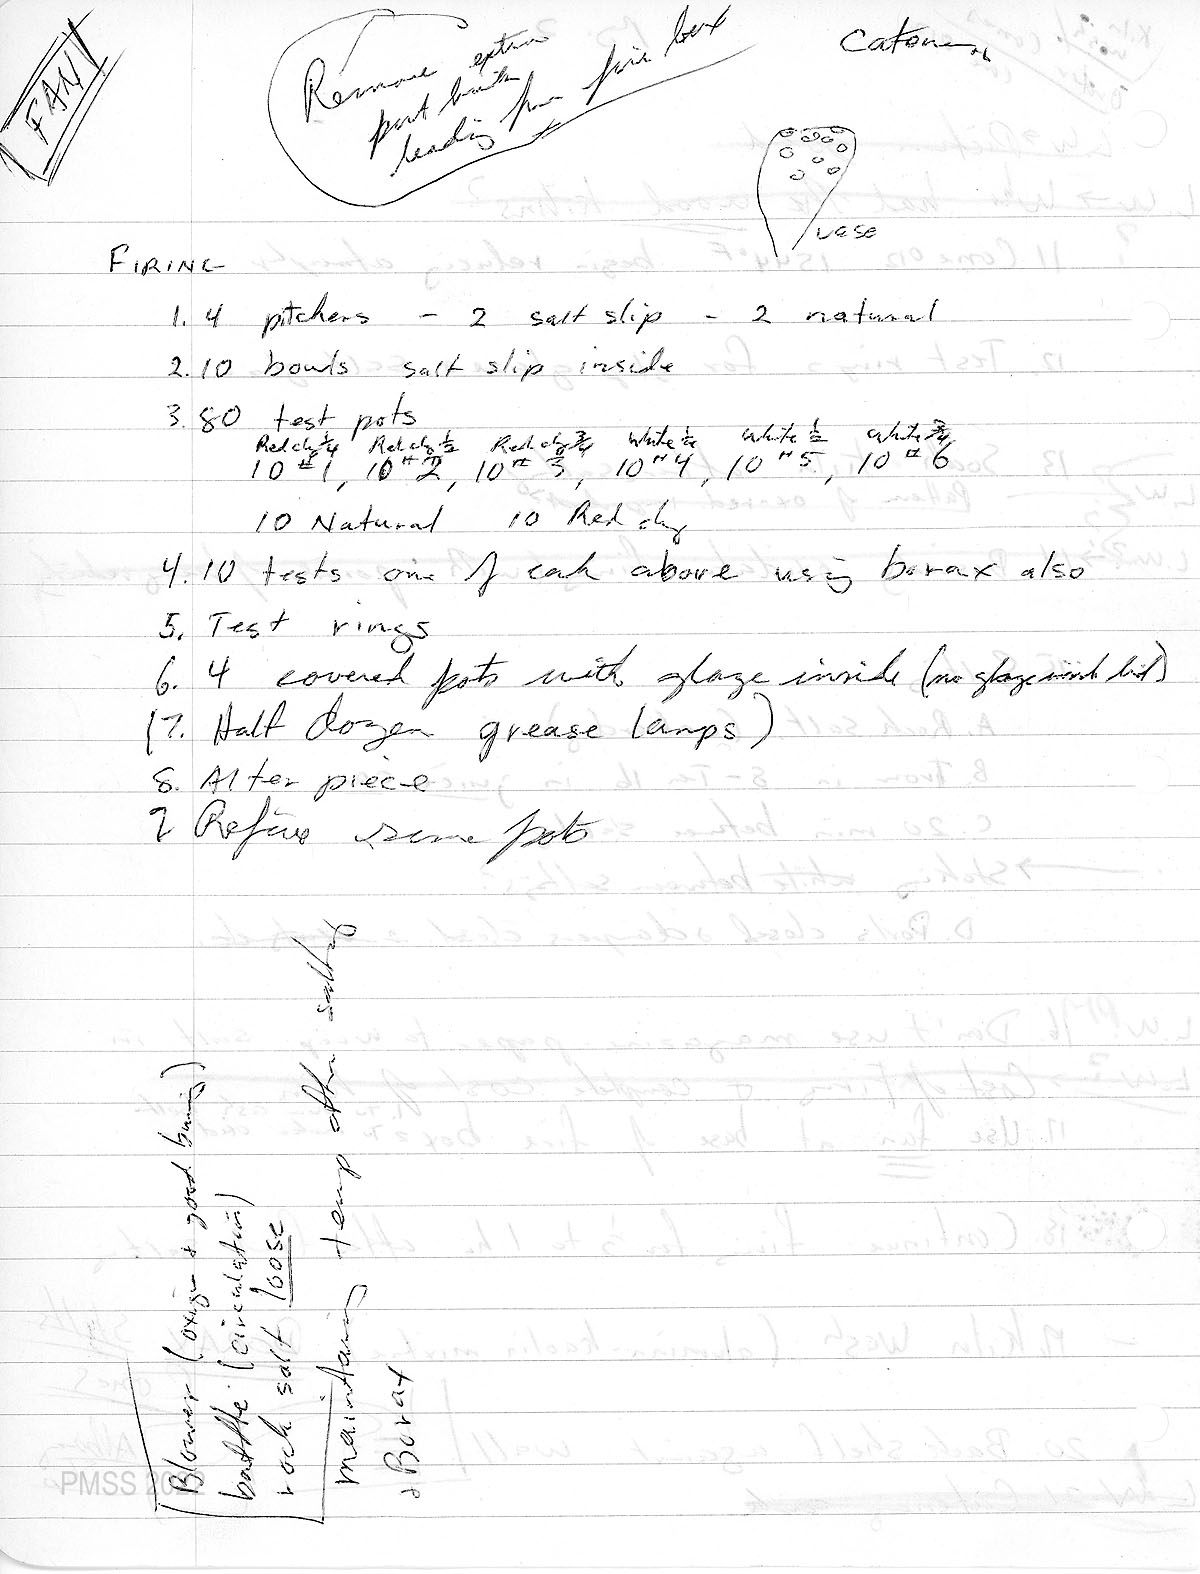 FAN!
Remove extra
port
leading from fire box
vase
FIRING
1. 4 pitchers - 2 salt slip - 2 natural
2. 10 bowls salt slip inside
3. 80 test pots
Red clay 1/4 Red clay 1/2 Red clay 3/4 White 1/4 White 1/2 White 3/4
10 #1, 10 #2, 10 #3, 10 #4, 10 #5, 10 #6
10 Natural 10 Red clay
4. 10 tests one of each above using borax also
5. Test rings
6. 4 covered pots with glaze inside (no glaze inside lid)
(7. Half dozen grease lamps)
8. Alter piece
9 Refire some pots
Blower (oxygen + good burning)
baffle (circulation)
rock salt loose
maintaing temp after salting
+ Borax
PMSS 2022